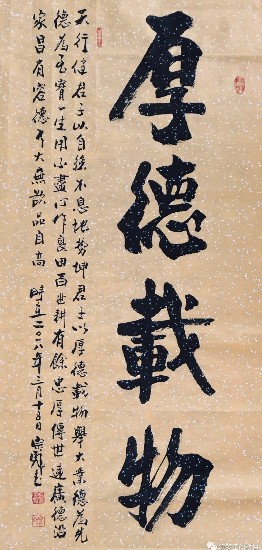 厚德載物
天行健君子以自强不息地勢坤君子以厚德載物舉大業德為先
德為至寶一生用不盡心作良田百世耕有餘忠厚傳世遠廣德沿
家昌有容德乃大無欺品自高
時在二〇一八年三月十五日